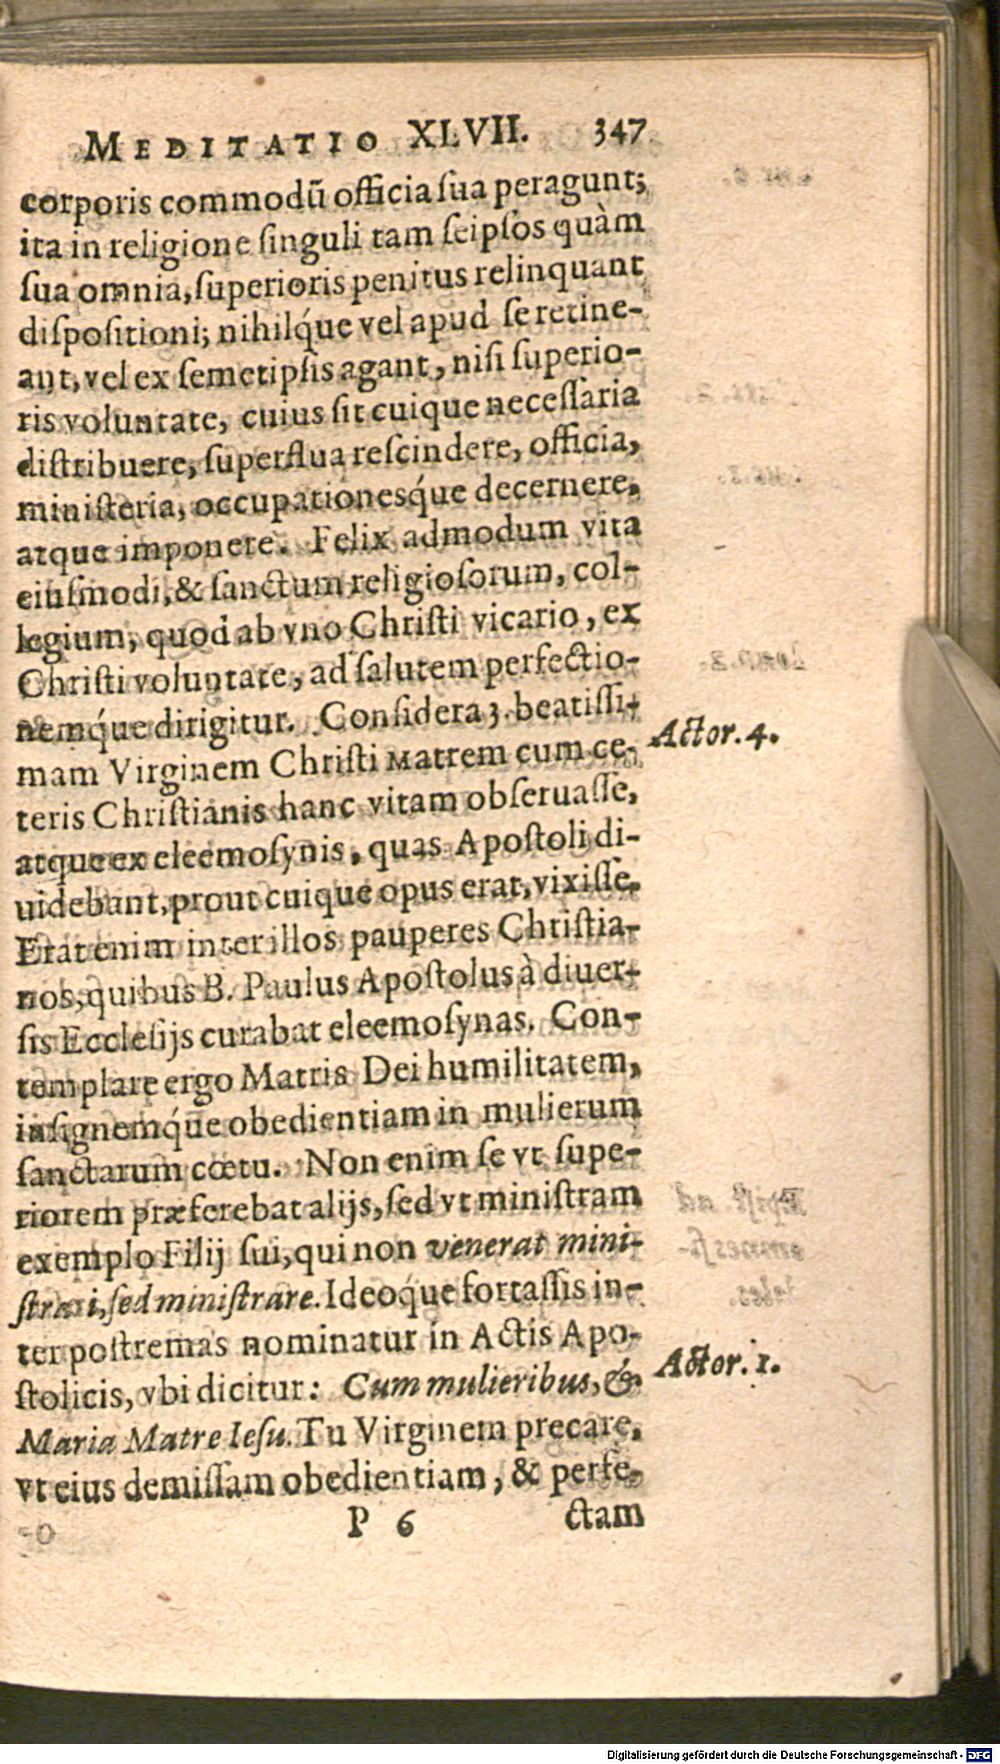 MEDITATIO XLVII. 347
corporis commodū officia ſua peragunt;
ita in religione ſinguli tam ſeipſos quàm
ſua omnia, ſuperioris penitus relinquant
diſpoſitioni; nihilq́ue vel apud ſe retine-
ant, vel ex ſemetipſis agant, niſi ſuperio-
ris voluntate, cuius ſit cuique neceſſaria
diſtribuere, ſuperflua reſcindere, officia,
miniſteria, occupationesq́ue decernere,
atque imponere. Felix admodum vita
eiuſmodi, & ſanctum religioſorum, col-
legium, quod ab vno Chriſti vicario, ex
Chriſti voluntate, ad ſalutem perfectio-
nemq́ue dirigitur. Conſidera 3. beatiſſi-
mam Virginem Chriſti Matrem cum ce-
Actor. 4.
teris Chriſtianis hanc vitam obſeruaſſe,
atque ex eleemoſynis, quas Apoſtoli di-
uidebant, prout cuique opus erat, vixiſſe.
Erat enim inter illos pauperes Chriſtia-
nos, quibus B. Paulus Apoſtolus à diuer-
ſis Eccleſijs curabat eleemoſynas. Con-
templare ergo Matris Dei humilitatem,
inſignemq́ue obedientiam in mulierum
ſanctarum cœtu. Non enim ſe vt ſupe-
riorem præferebat alijs, ſed vt miniſtram
exemplo Filij ſui, qui non venerat mini-
ſtrari, ſed miniſtrare. Ideoque fortaſſis in-
ter poſtremas nominatur in Actis Apo-
ſtolicis, vbi dicitur: Cum mulieribus, &
Actor. 1.
Maria Matre Ieſu. Tu Virginem precare,
vt eius demiſſam obedientiam, & perfe-
P 6 ctam
Digitalisierung gefördert durch die Deutsche Forschungsgemeinschaft - DFG